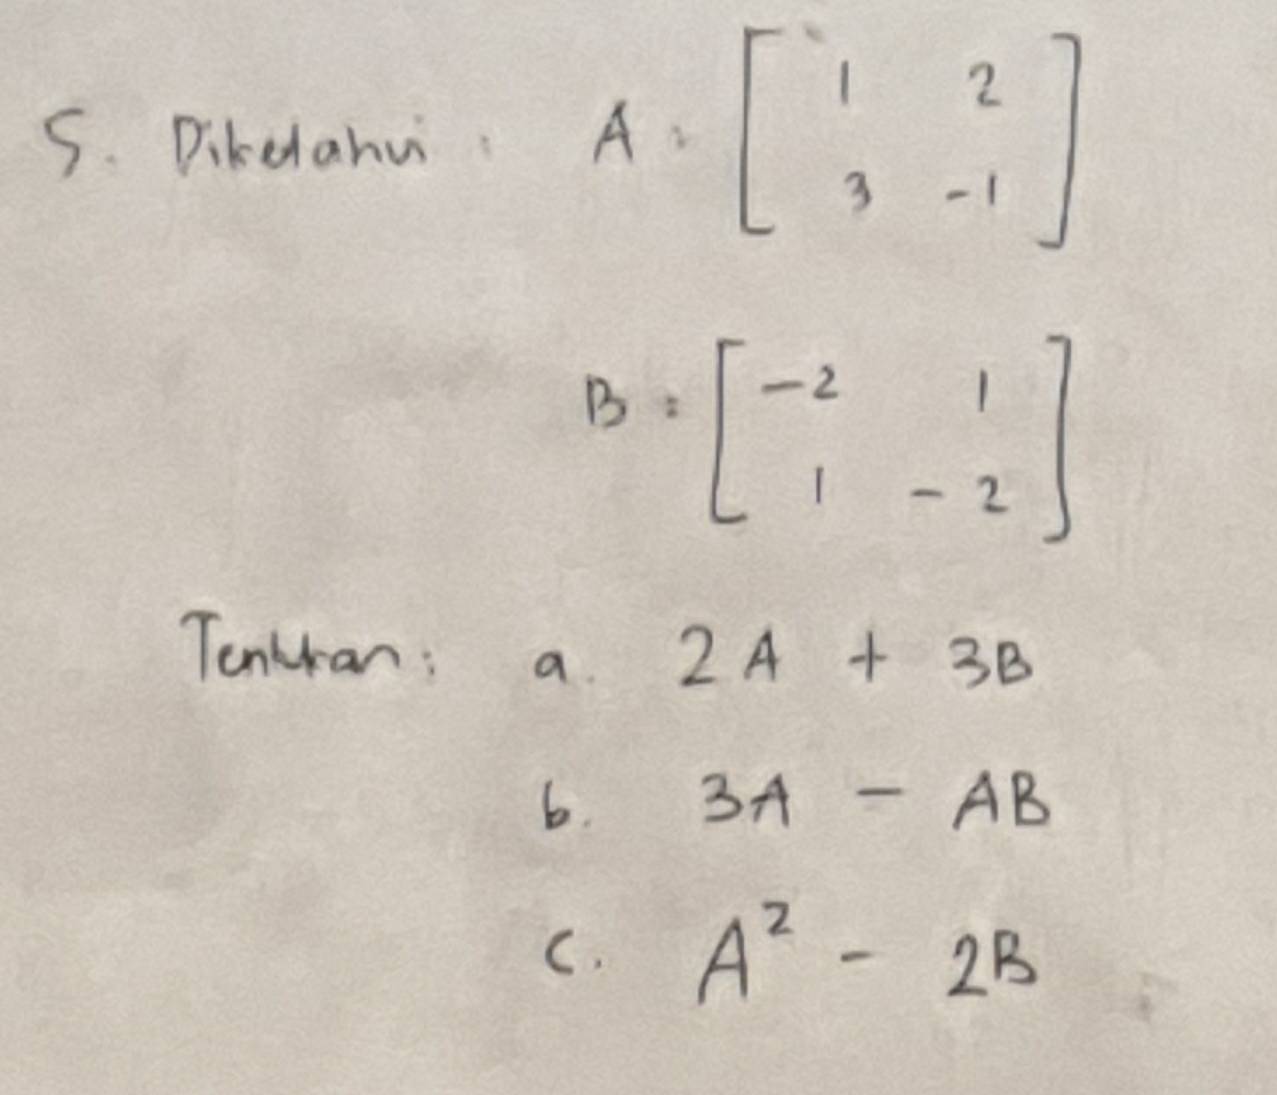 5. Diketahui : A = [ 1 2
3 -1 ]
B = [ -2 1
1 -2 ]
Tentukan : a. 2A + 3B
b. 3A - AB
c. A² - 2B